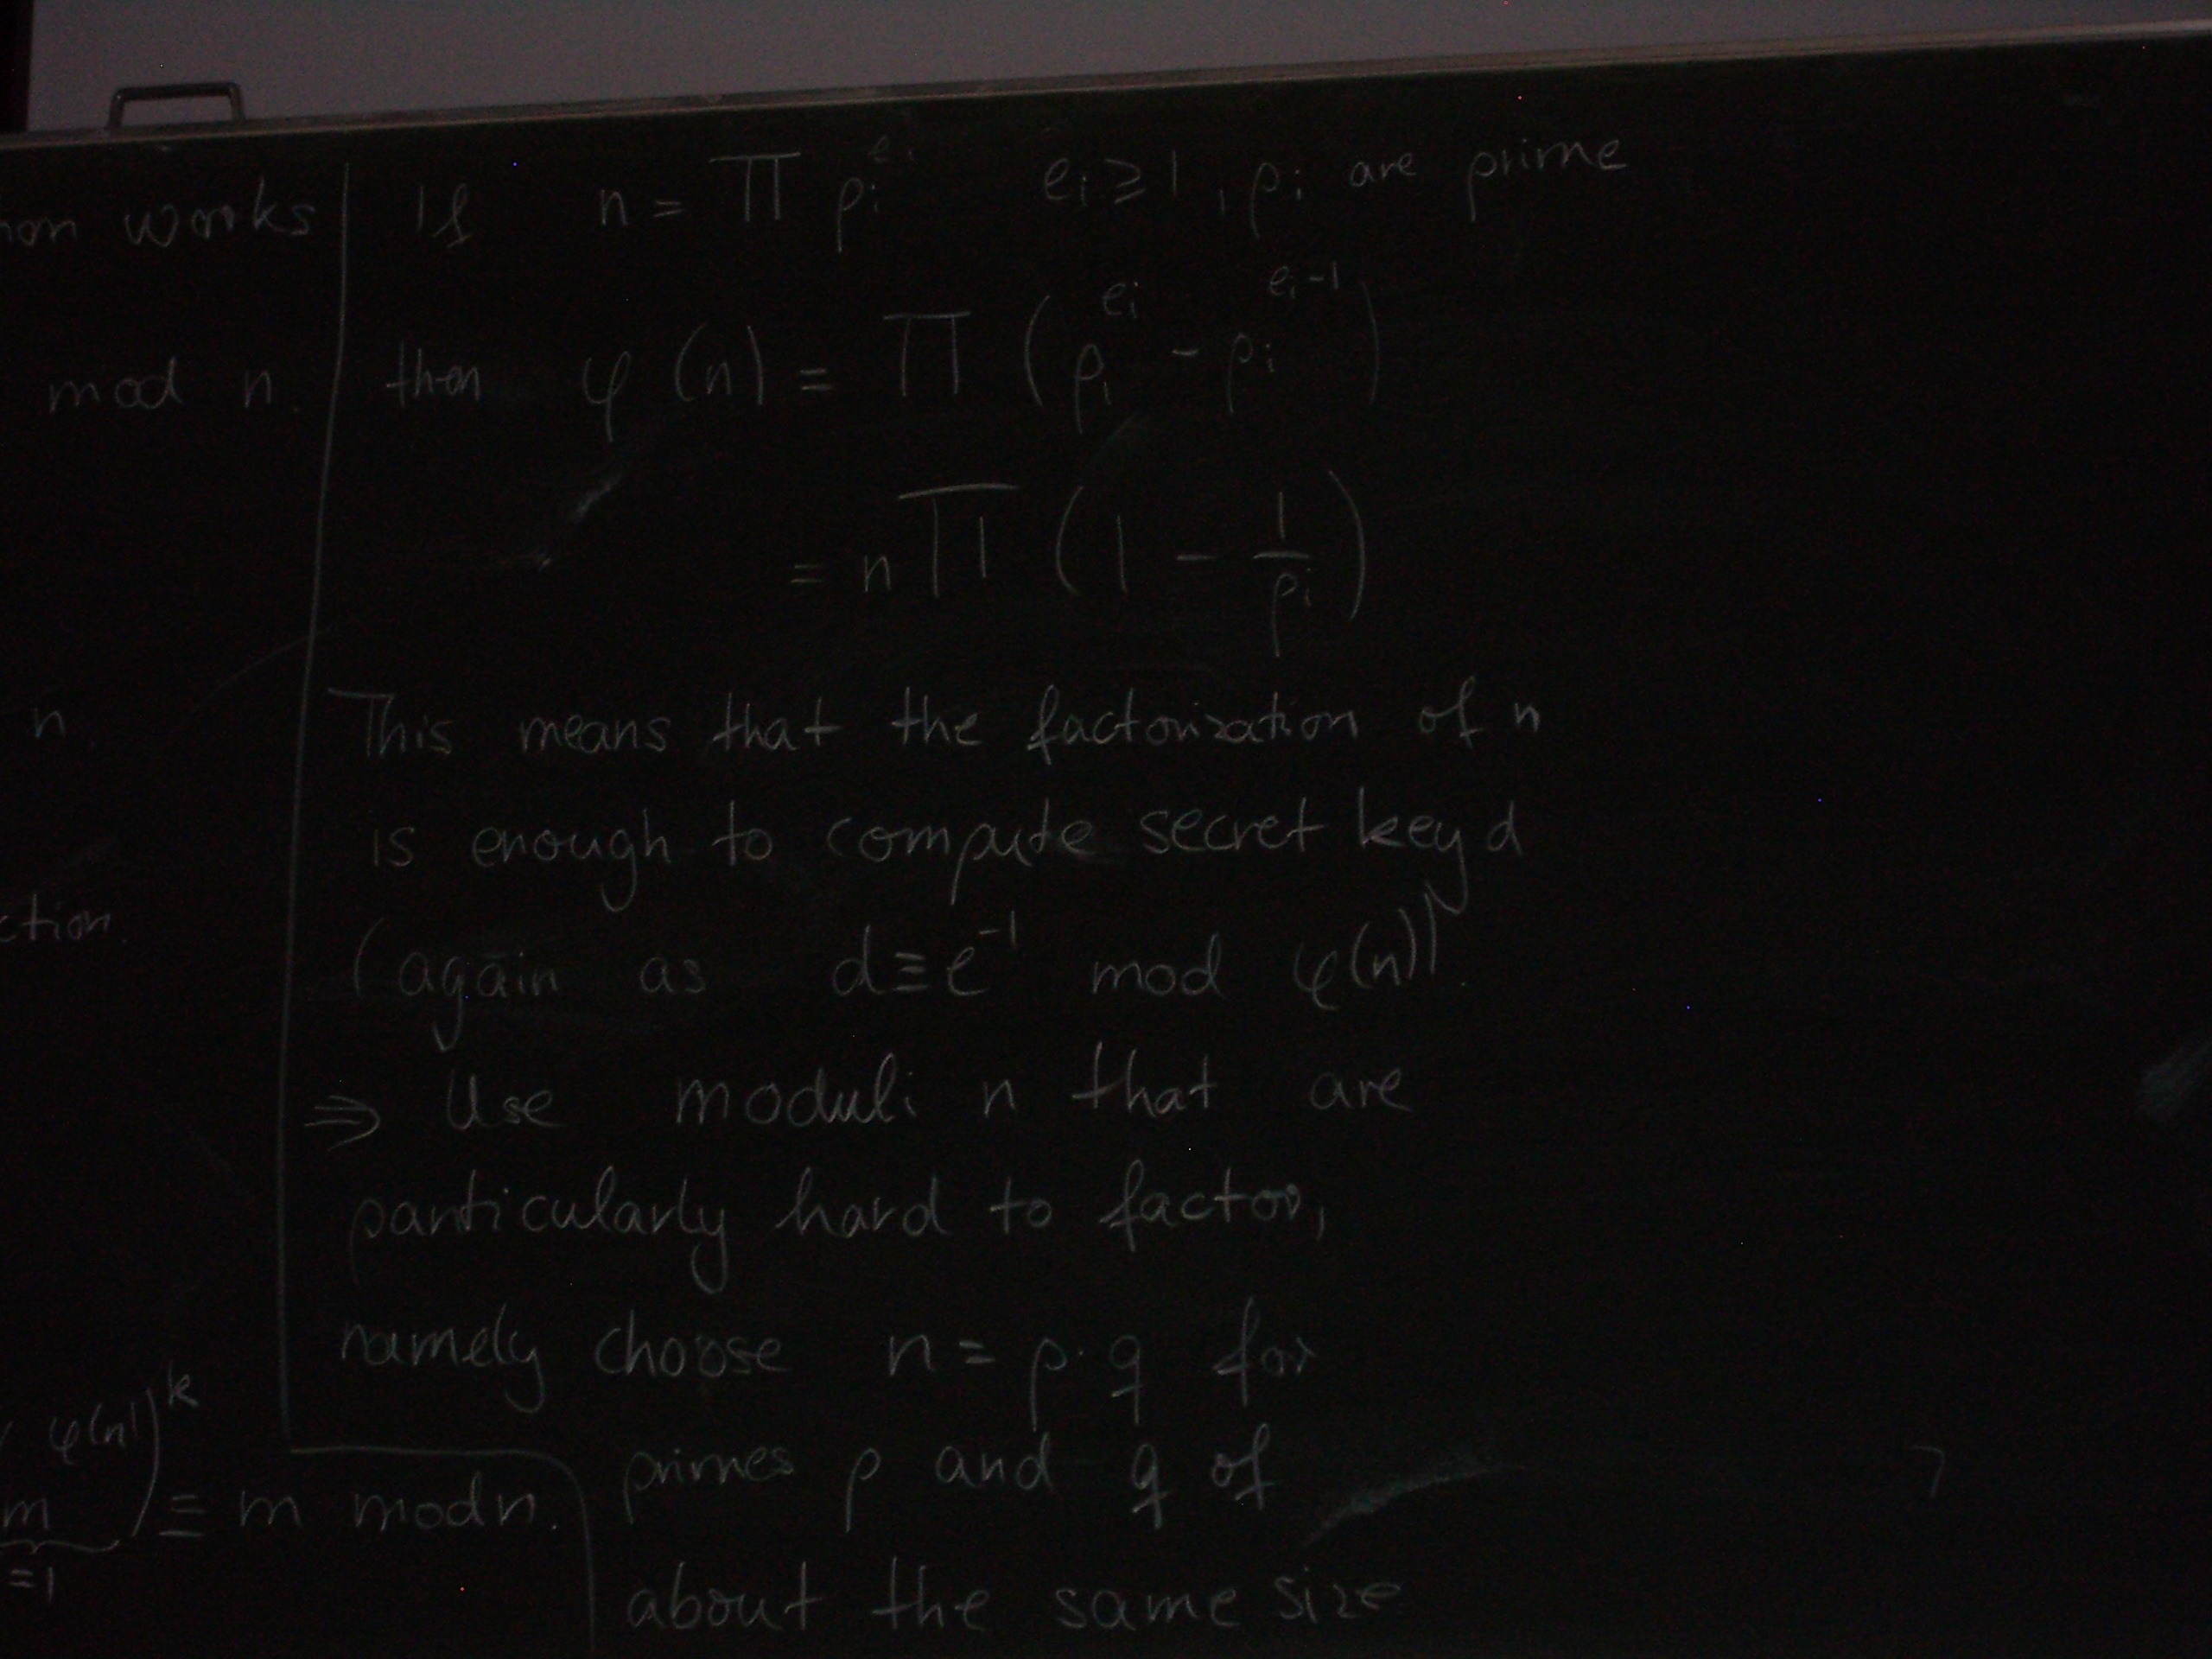 works
mod n.
n.
φ(n))^k
m ) ≡ m mod n.
=1
If n = ∏ p_i^{e_i} e_i ≥ 1, p_i are prime
then φ(n) = ∏ (p_i^{e_i} - p_i^{e_i-1})
= n ∏ (1 - 1/p_i)
This means that the factorization of n
is enough to compute secret key d
(again as d ≡ e^{-1} mod φ(n)).
⇒ Use moduli n that are
particularly hard to factor,
namely choose n = p·q for
primes p and q of
about the same size